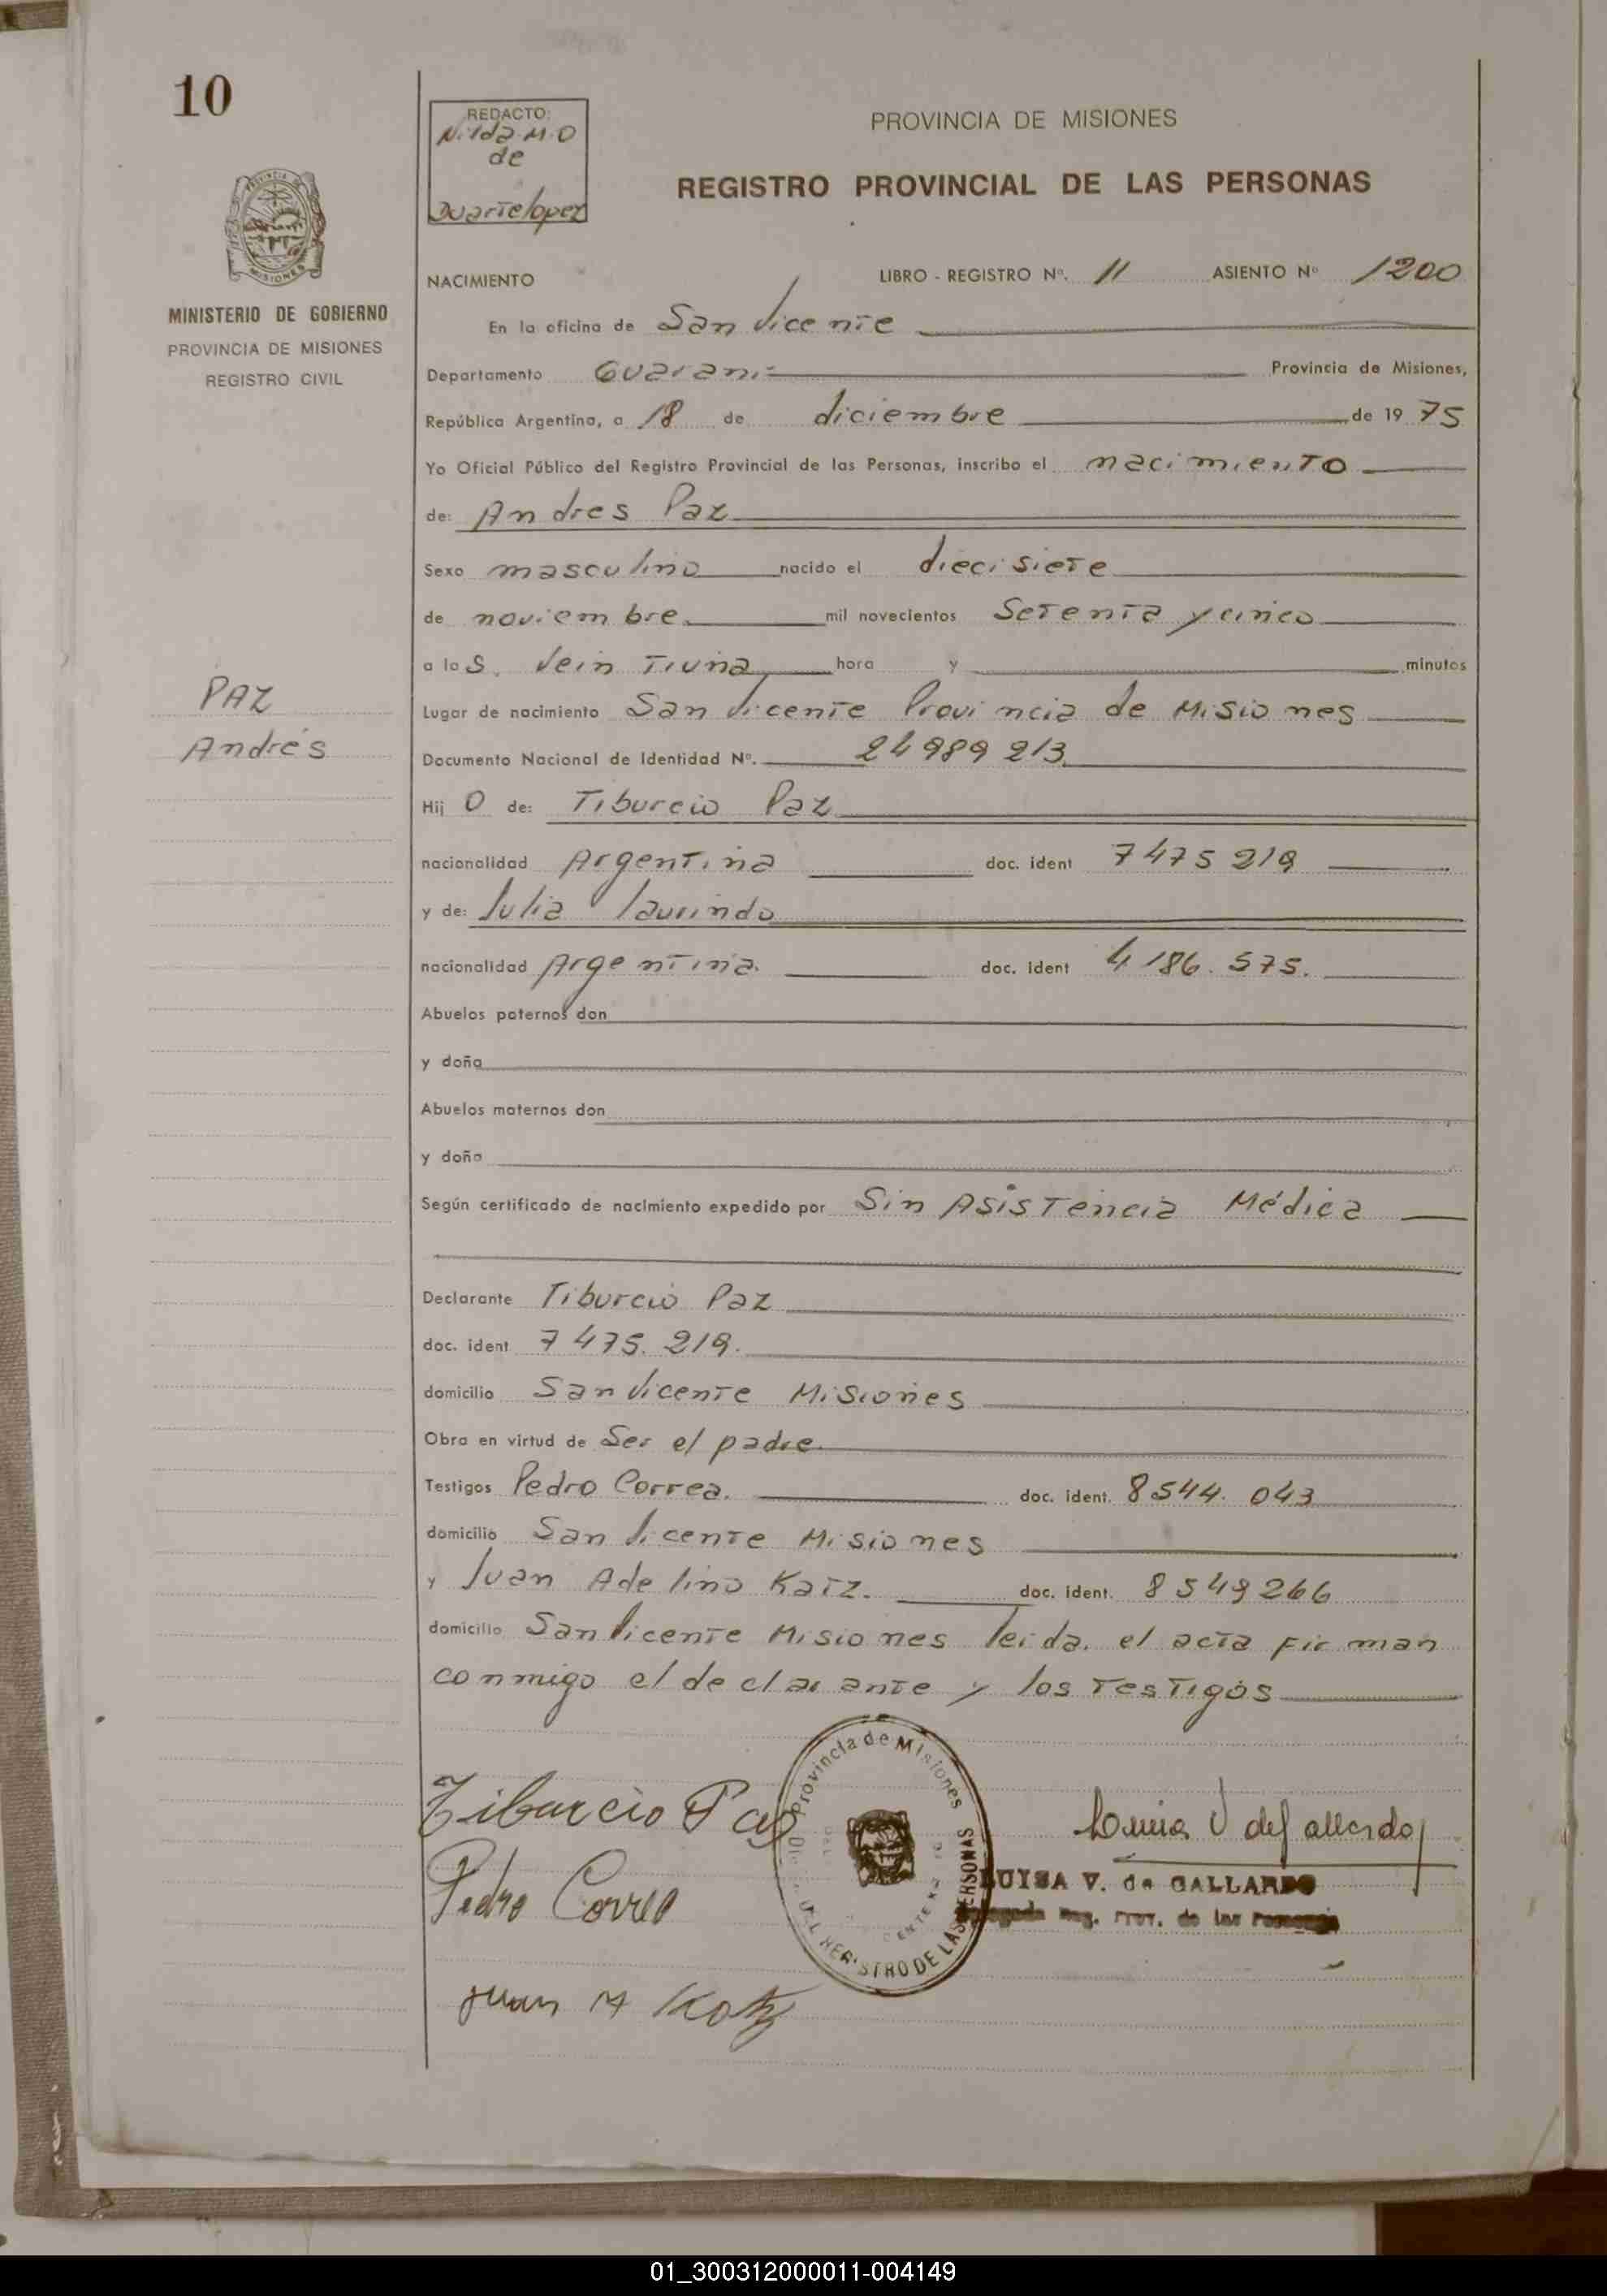 10
REDACTO:
Nilda M. D
de
Duarte lopez
PROVINCIA DE MISIONES
REGISTRO PROVINCIAL DE LAS PERSONAS
PROVINCIA DE
MISIONES
MINISTERIO DE GOBIERNO
PROVINCIA DE MISIONES
REGISTRO CIVIL
NACIMIENTO LIBRO - REGISTRO Nº. 11 ASIENTO Nº 1200
En la oficina de San Vicente
Departamento Guarani Provincia de Misiones,
República Argentina, a 18 de diciembre de 19 75
Yo Oficial Público del Registro Provincial de las Personas, inscribo el nacimiento
de: Andres Paz
Sexo masculino nacido el diecisiete
de noviembre mil novecientos Setenta y cinco
a las. Veintiuna hora y minutos
PAZ
Andrés
Lugar de nacimiento San Vicente Provincia de Misiones
Documento Nacional de Identidad Nº. 24 989 213
Hij o de: Tiburcio Paz
nacionalidad Argentina doc. ident 7475 219
y de: Julia laurindo
nacionalidad Argentina. doc. ident 4.186.575.
Abuelos paternos don
y doña
Abuelos maternos don
y doña
Según certificado de nacimiento expedido por Sin Asistencia Médica
Declarante Tiburcio Paz
doc. ident 7 475. 219.
domicilio San Vicente Misiones
Obra en virtud de Ser el padre.
Testigos Pedro Correa. doc. ident. 8544. 043
domicilio San Vicente Misiones
y Juan Adelino Katz. doc. ident. 8549266
domicilio San Vicente Misiones leida. el acta firman
conmigo el declarante y los testigos
Tiburcio Paz
Pedro Correa
Juan A Katz
Provincia de Misiones
DEL REGISTRO DE LAS PERSONAS
Luisa V de Gallardo
LUISA V. de GALLARDO
Delegada Reg. Prov. de las Personas
01_300312000011-004149